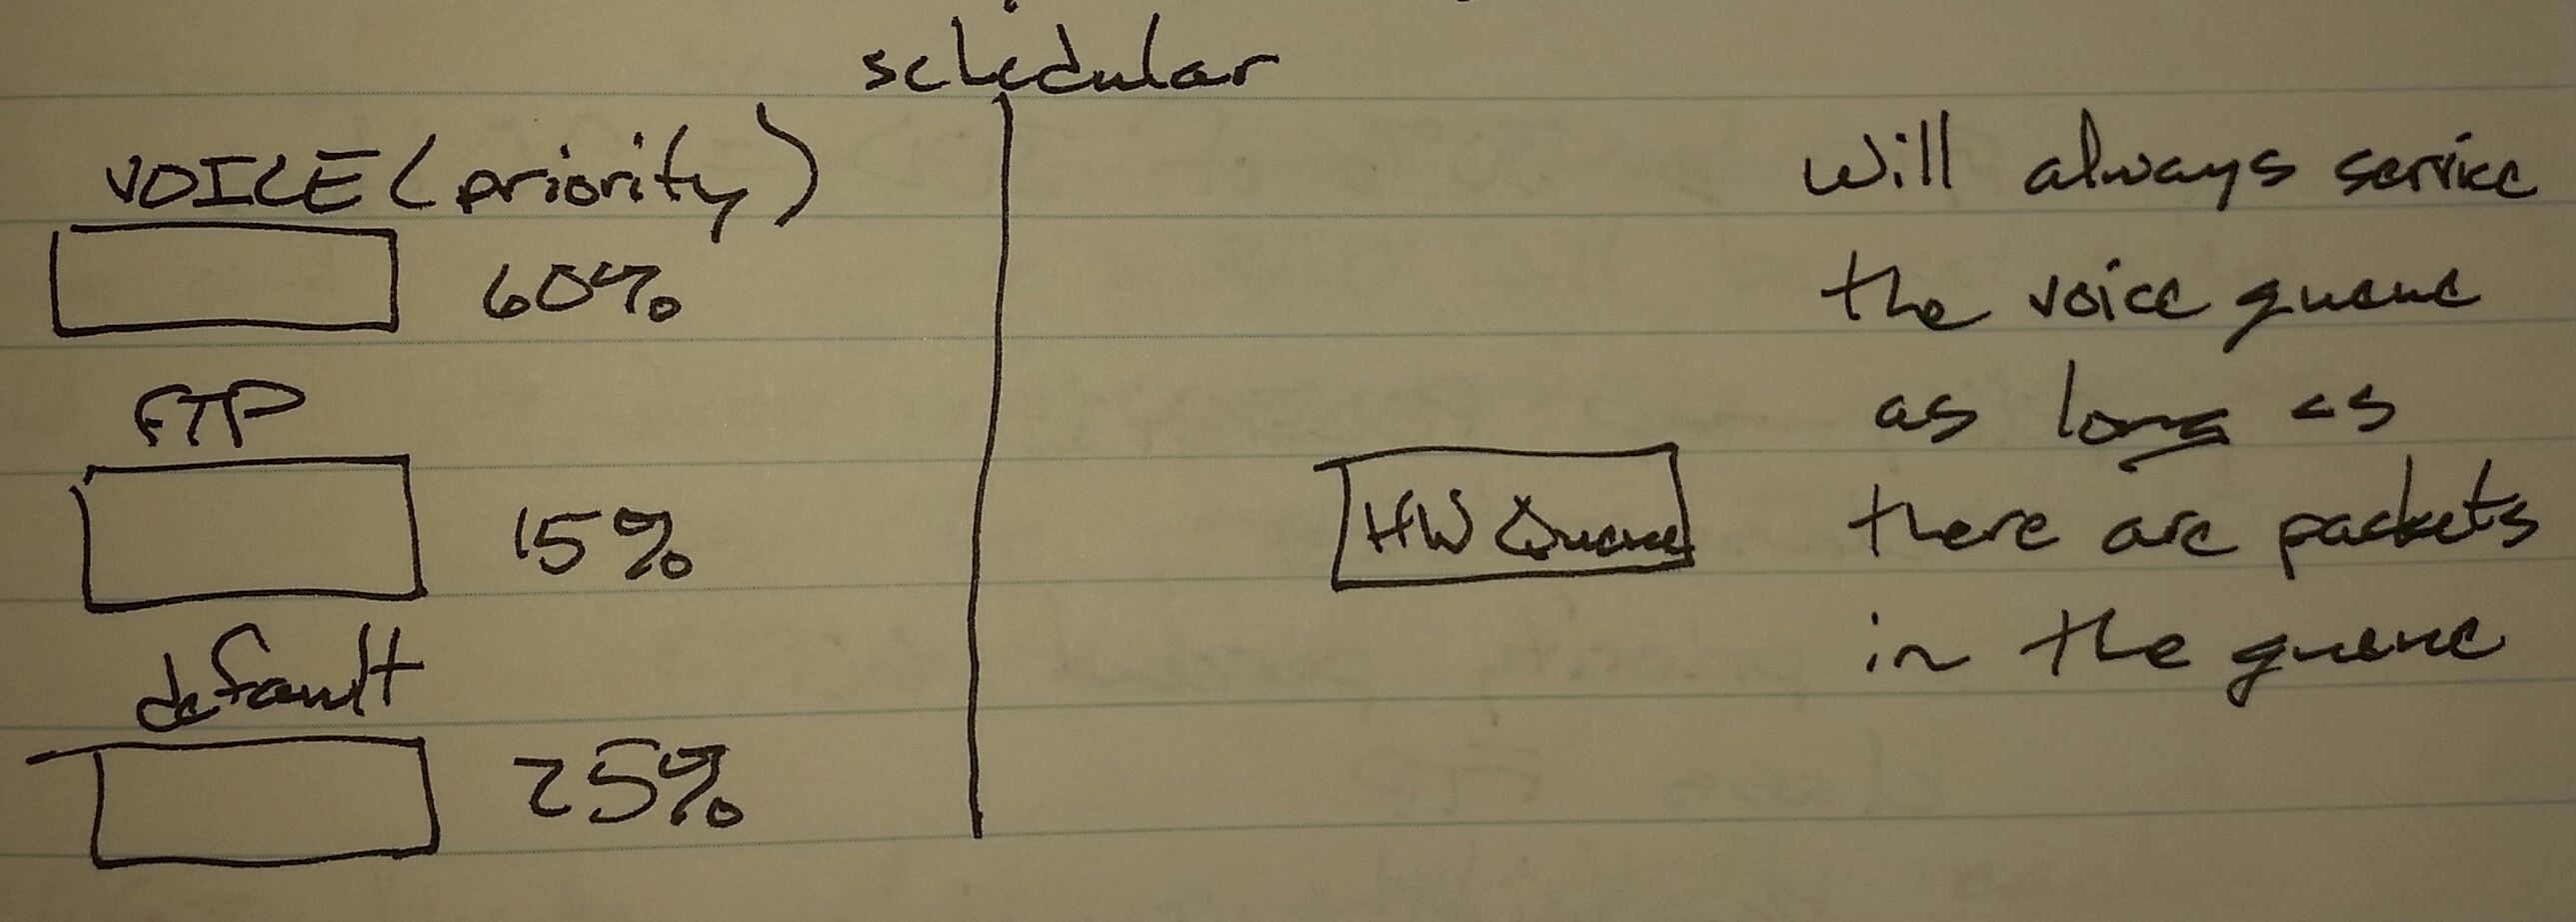 schedular
VOICE (priority)
60%
FTP
15%
default
25%
HW Queue
Will always service
the voice queue
as long as
there are packets
in the queue